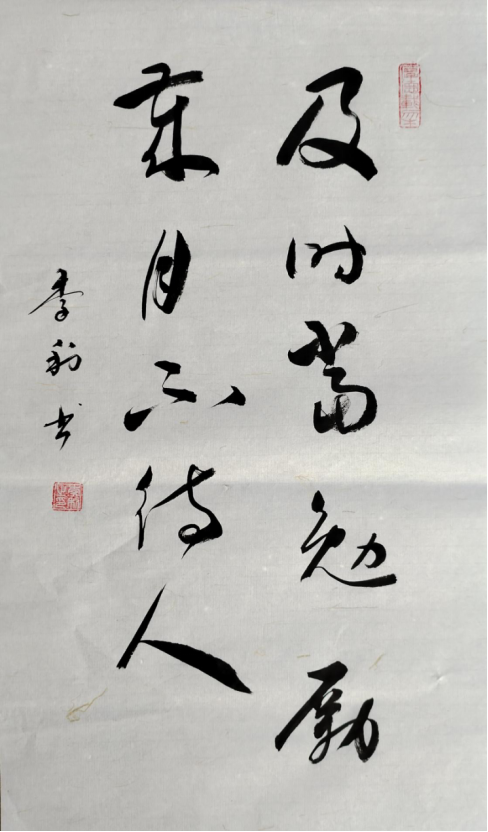 及时当勉励
岁月不待人
李利书